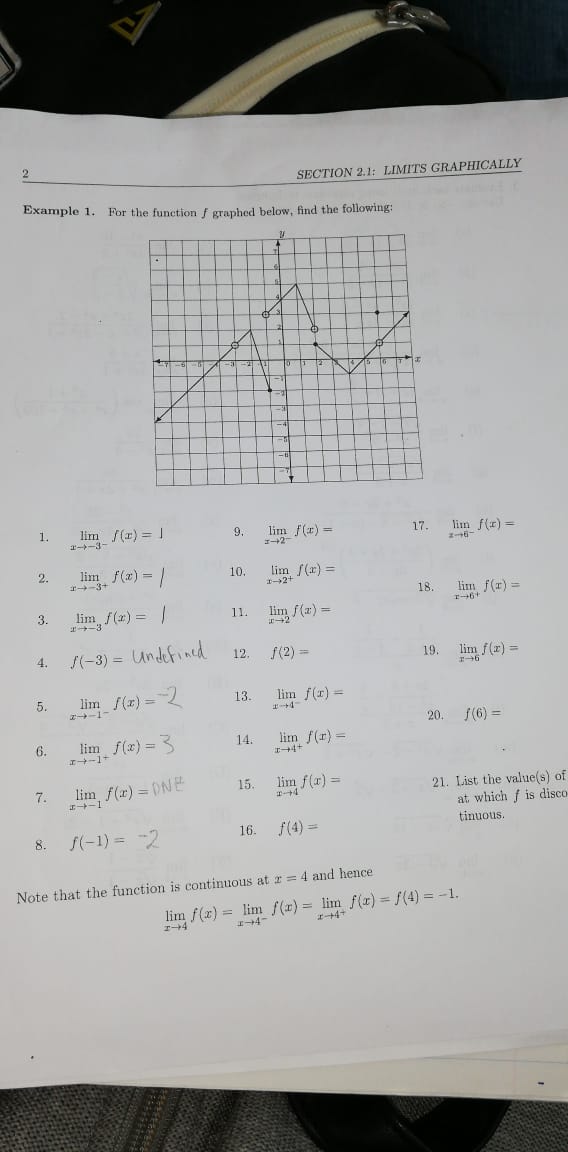 2 SECTION 2.1: LIMITS GRAPHICALLY
Example 1. For the function f graphed below, find the following:
y
7
6
5
4
3
2
1
-7 -6 -5 -4 -3 -2 -1 0 1 2 3 4 5 6 7 x
-1
-2
-3
-4
-5
-6
-7
1. lim x→-3⁻ f(x) = 1
2. lim x→-3⁺ f(x) = 1
3. lim x→-3 f(x) = 1
4. f(-3) = undefined
5. lim x→-1⁻ f(x) = -2
6. lim x→-1⁺ f(x) = 3
7. lim x→-1 f(x) = DNE
8. f(-1) = -2
9. lim x→2⁻ f(x) =
10. lim x→2⁺ f(x) =
11. lim x→2 f(x) =
12. f(2) =
13. lim x→4⁻ f(x) =
14. lim x→4⁺ f(x) =
15. lim x→4 f(x) =
16. f(4) =
17. lim x→6⁻ f(x) =
18. lim x→6⁺ f(x) =
19. lim x→6 f(x) =
20. f(6) =
21. List the value(s) of
at which f is disco
tinuous.
Note that the function is continuous at x = 4 and hence
lim x→4 f(x) = lim x→4⁻ f(x) = lim x→4⁺ f(x) = f(4) = -1.